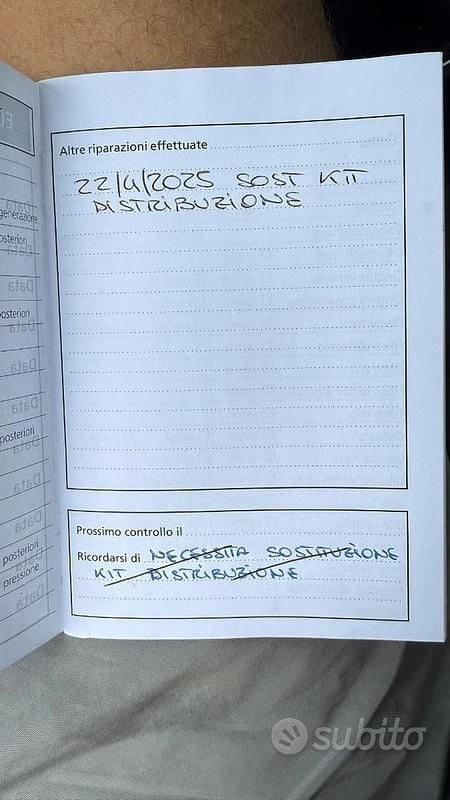 Altre riparazioni effettuate
22/4/2025 SOST KIT
DISTRIBUZIONE
Prossimo controllo il
Ricordarsi di NECESSITA SOSTITUZIONE
KIT DISTRIBUZIONE
generazione
posteriori
Data
Data
posteriori
Data
Data
Data
posteriori
Data
Data
Data
posteriori
pressione
Data
subito